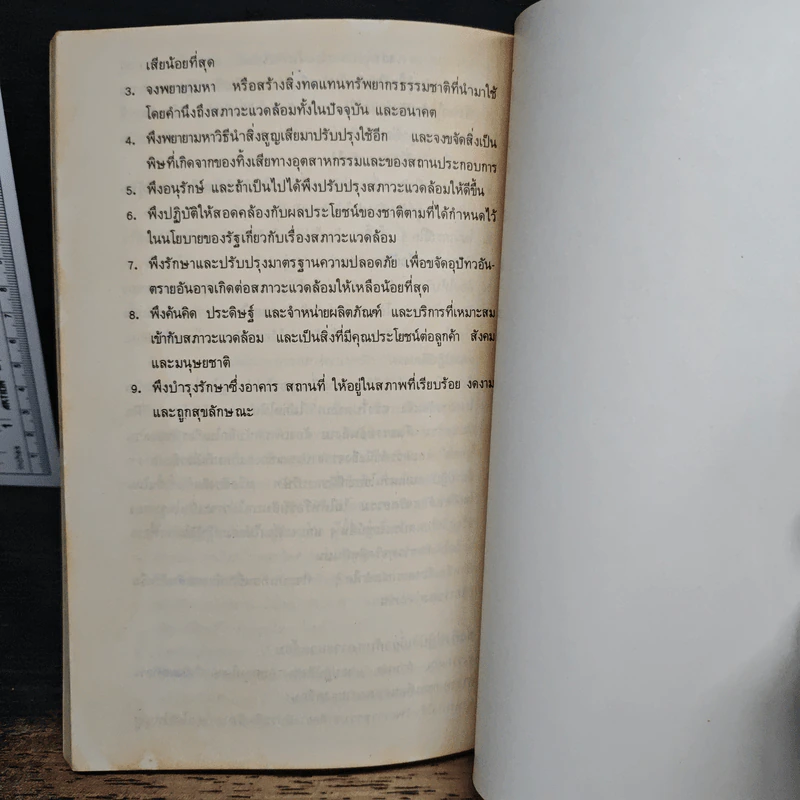 เสียน้อยที่สุด
3. จงพยายามหา หรือสร้างสิ่งทดแทนทรัพยากรธรรมชาติที่นำมาใช้
โดยคำนึงถึงสภาวะแวดล้อมทั้งในปัจจุบัน และอนาคต
4. พึงพยายามหาวิธีนำสิ่งสูญเสียมาปรับปรุงใช้อีก และจงขจัดสิ่งเป็น
พิษที่เกิดจากของทิ้งเสียทางอุตสาหกรรมและของสถานประกอบการ
5. พึงอนุรักษ์ และถ้าเป็นไปได้พึงปรับปรุงสภาวะแวดล้อมให้ดีขึ้น
6. พึงปฏิบัติให้สอดคล้องกับผลประโยชน์ของชาติตามที่ได้กำหนดไว้
ในนโยบายของรัฐเกี่ยวกับเรื่องสภาวะแวดล้อม
7. พึงรักษาและปรับปรุงมาตรฐานความปลอดภัย เพื่อขจัดอุปัทวอัน-
ตรายอันอาจเกิดต่อสภาวะแวดล้อมให้เหลือน้อยที่สุด
8. พึงค้นคิด ประดิษฐ์ และจำหน่ายผลิตภัณฑ์ และบริการที่เหมาะสม
เข้ากับสภาวะแวดล้อม และเป็นสิ่งที่มีคุณประโยชน์ต่อลูกค้า สังคม
และมนุษยชาติ
9. พึงบำรุงรักษาซึ่งอาคาร สถานที่ ให้อยู่ในสภาพที่เรียบร้อย งดงาม
และถูกสุขลักษณะ